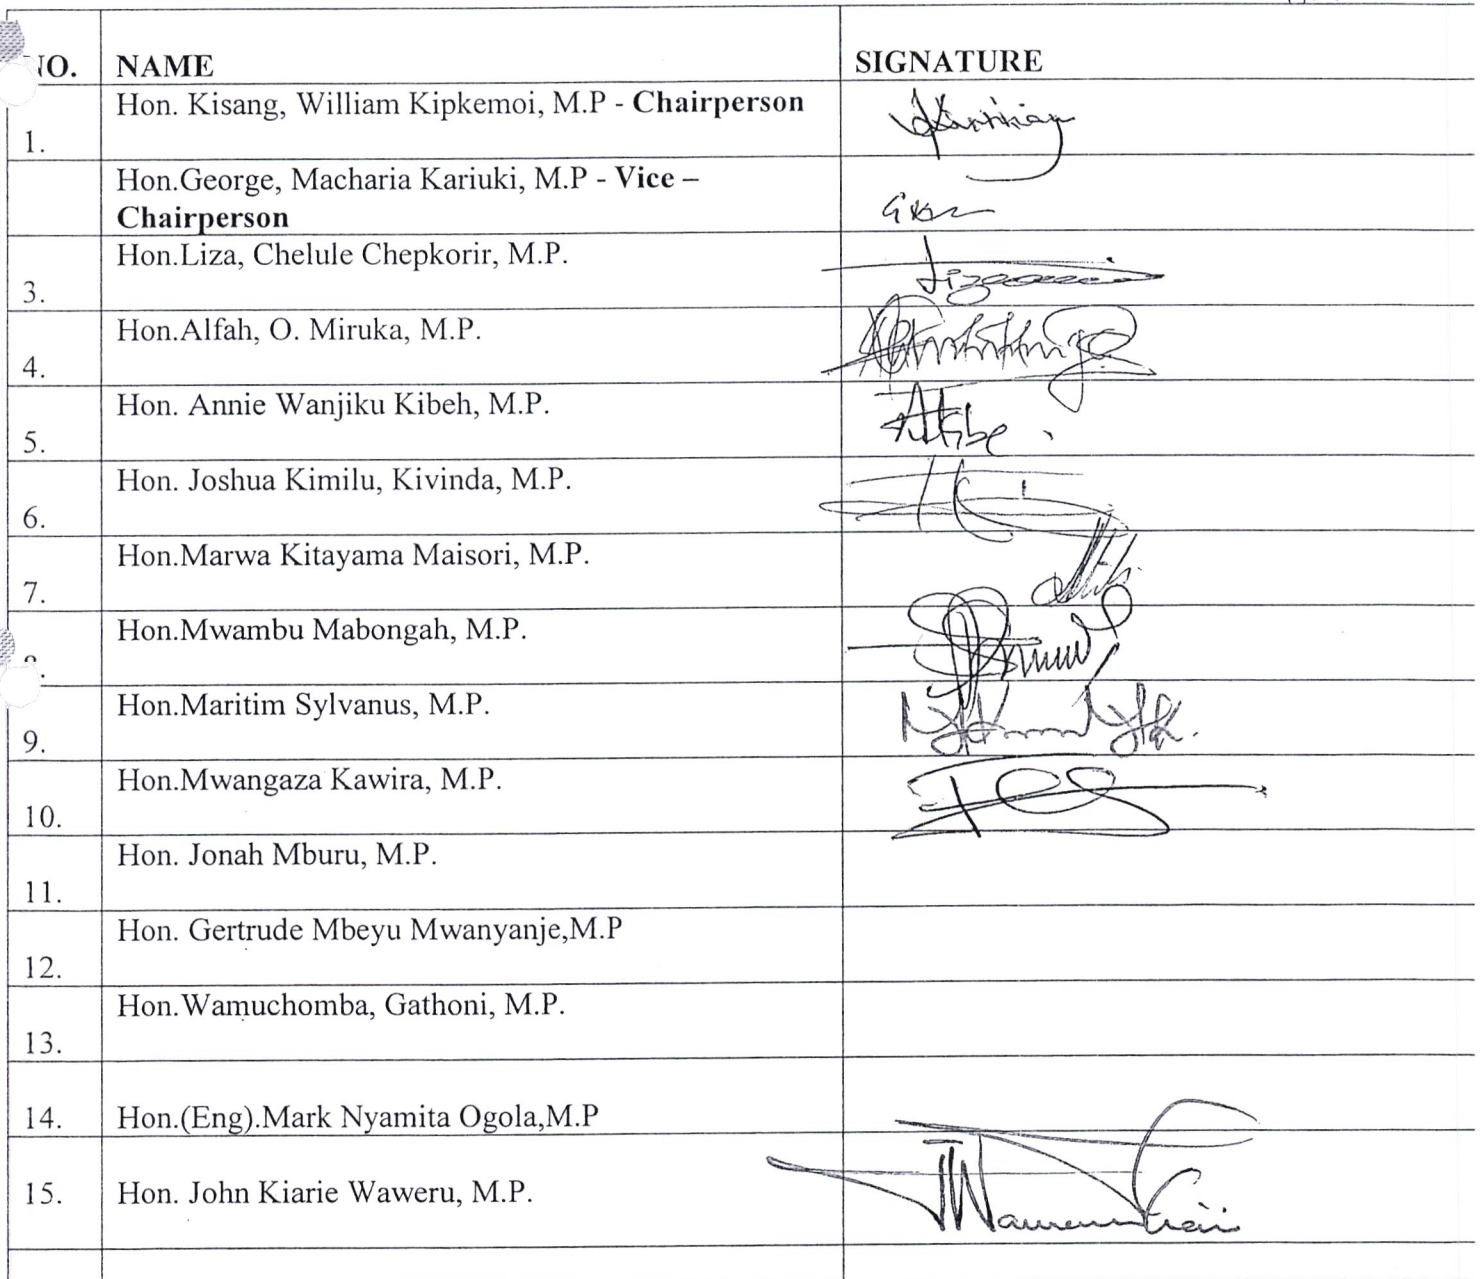 NO. NAME SIGNATURE
1. Hon. Kisang, William Kipkemoi, M.P - Chairperson
Hon.George, Macharia Kariuki, M.P - Vice –
Chairperson
3. Hon.Liza, Chelule Chepkorir, M.P.
4. Hon.Alfah, O. Miruka, M.P.
5. Hon. Annie Wanjiku Kibeh, M.P.
6. Hon. Joshua Kimilu, Kivinda, M.P.
7. Hon.Marwa Kitayama Maisori, M.P.
Hon.Mwambu Mabongah, M.P.
9. Hon.Maritim Sylvanus, M.P.
10. Hon.Mwangaza Kawira, M.P.
11. Hon. Jonah Mburu, M.P.
12. Hon. Gertrude Mbeyu Mwanyanje,M.P
13. Hon.Wamuchomba, Gathoni, M.P.
14. Hon.(Eng).Mark Nyamita Ogola,M.P
15. Hon. John Kiarie Waweru, M.P.